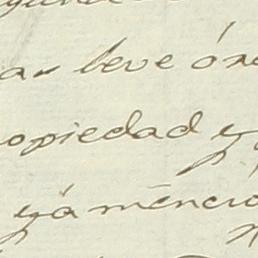 a leve ón
opiedad y
yá mencio